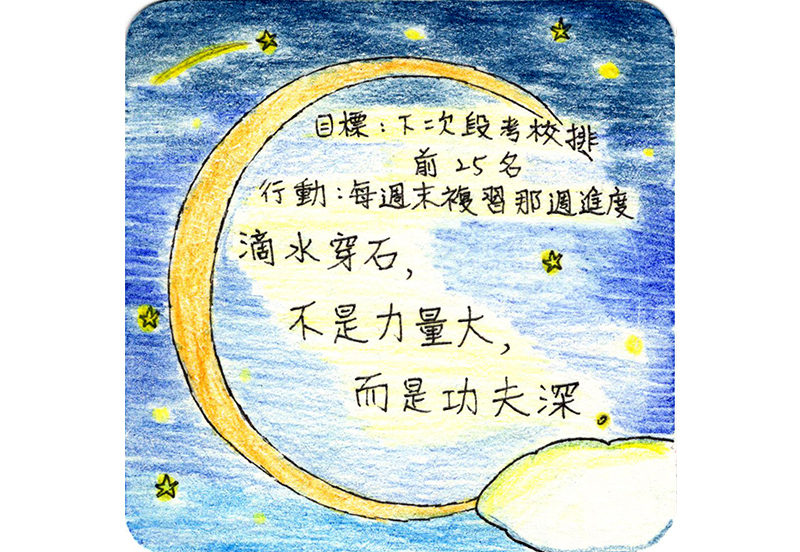 目標:下次段考校排
前25名
行動:每週末複習那週進度
滴水穿石,
不是力量大,
而是功夫深。